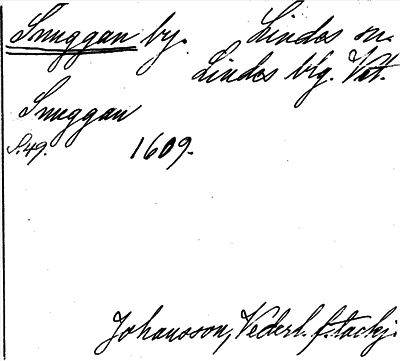 Snuggan by. Lindes sn.
Lindes blg. Vstm.
Snuggan
S.49. 1609.
Johansson, Vederl. f. tackj.